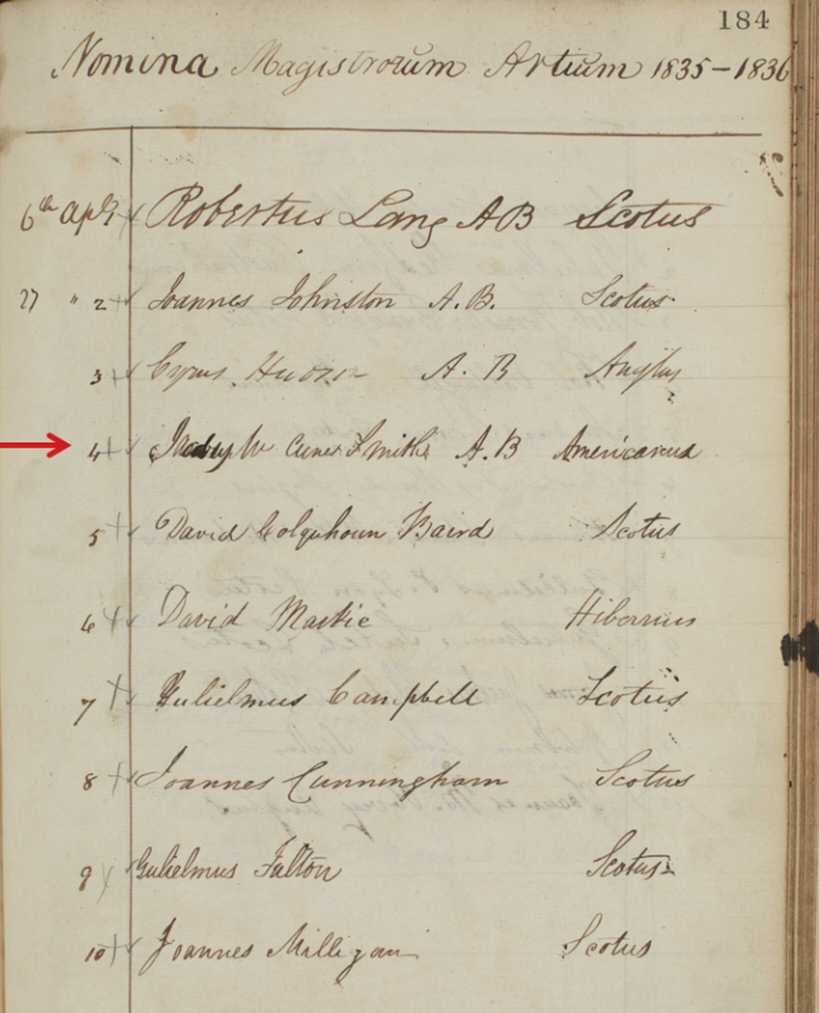 184
Nomina Magistrorum Artium 1835-1836
6th Apl Robertus Lang AB Scotus
27 " 2 Joannes Johnston A.B. Scotus
3 Cyrus A. B Anglus
4 Smith A.B Americanus
5 David Colquhoun Baird Scotus
6 David Mackie Hibernus
7 Gulielmus Campbell Scotus
8 Joannes Cunningham Scotus
9 Gulielmus Fulton Scotus
10 Joannes Milligan Scotus